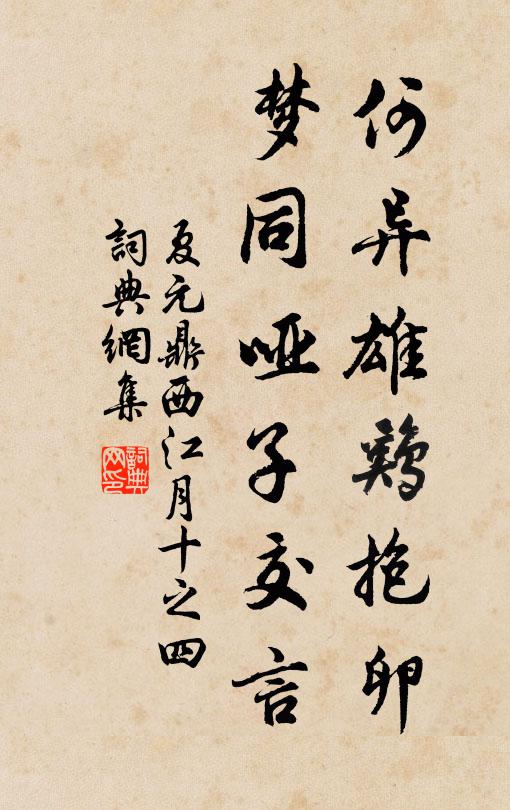 何异雄鷄抱卵
梦同哑子交言
夏元鼎西江月十之四
詞典網集
詞典网印